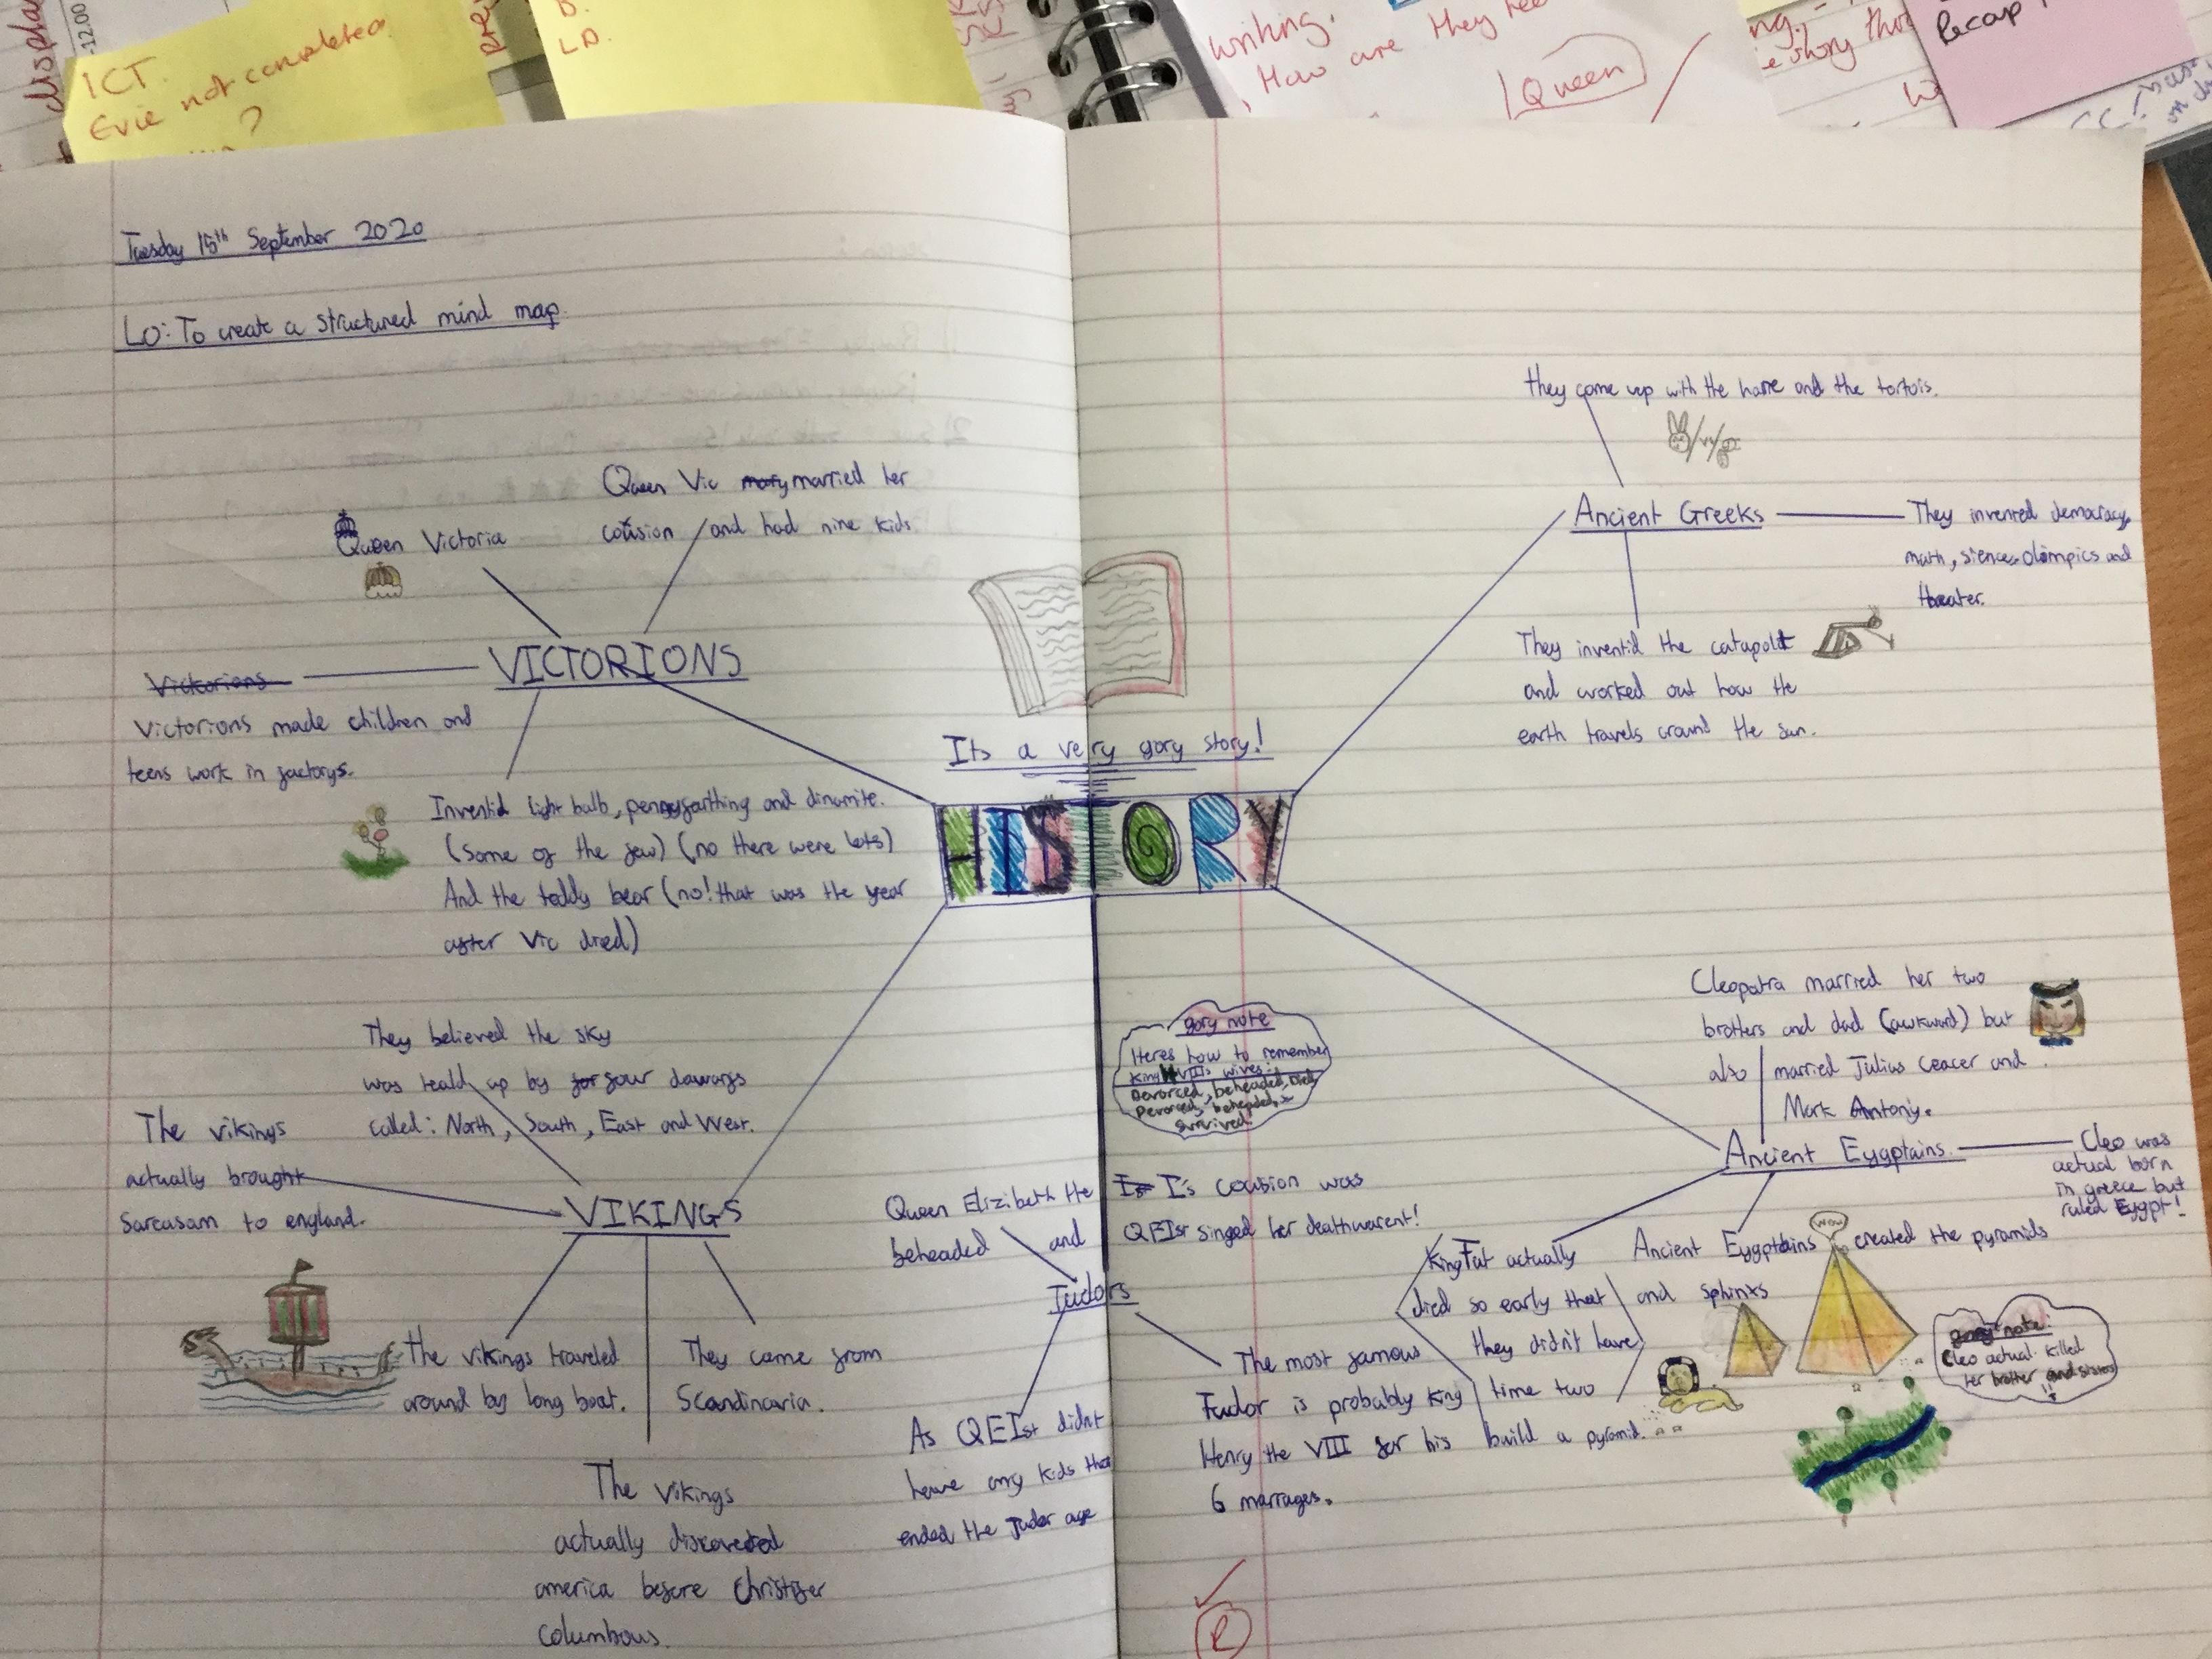 ICT.
Evie not completed
?
D.
LA.
writing.
, How are they
Queen
Recap
Tuesday 15th September 2020
LO: To create a structured mind map.
Queen Victoria
Queen Vic mary married her
cousion and had nine kids
VICTORIONS
Vickorians
Victorions made children and
teens work in factorys.
Inventid light bulb, pennyfarthing and dinamite.
(Some of the few) (no there were lots)
And the teddy bear (no! that was the year
after Vic dired)
Its a very gory story!
HISTORY
they came up with the hare and the tortois.
vs
Ancient Greeks
They invented democracy,
math, sience, olimpics and
theater.
They inventid the catapolt
and worked out how the
earth travels around the sun.
They believed the sky
was heald up by for four dawarfs
called: North, South, East and West.
The vikings
actually brought
Sarcasam to england.
VIKINGS
the vikings traveled
around by long boat.
They came from
Scandinavia.
The vikings
actually discovered
america before Christifer
columbous.
gory note
Heres how to remember
King H VIII's wives:
Devorced, beheaded, Died,
Devorced, beheaded,
survived!
Queen Elizibeth the Ist I's cousion was
beheaded and QEIst singed her deathwarent!
Tudors
As QEIst didnt
have any kids that
ended the Tudor age
The most famous
Tudor is probably King
Henry the VIII for his
6 marrages.
Cleopatra married her two
brothers and dad (awkward) but
also married Julius Ceacer and
Mark Antoniy.
Ancient Eygptains
Cleo was
actual born
in greece but
ruled Eygpt!
King Tut actually
died so early that
they didn't have
time two
build a pyramid.
Ancient Eygptains created the pyramids
and sphinxs
wow
gory note.
Cleo actual killed
her brother and sisters
!!
R